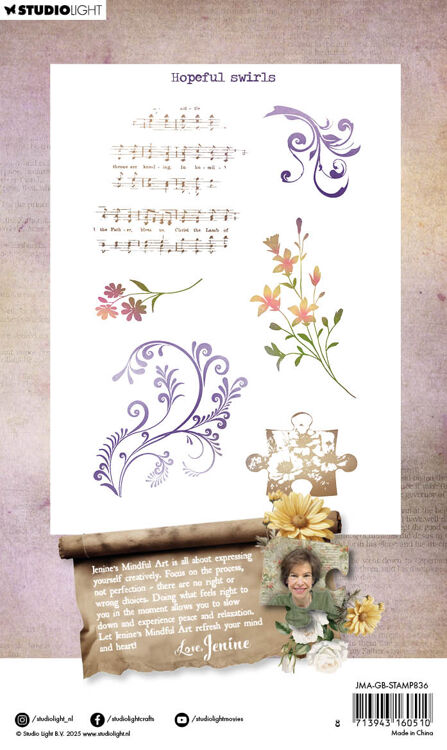 STUDIOLIGHT
Hopeful swirls
throne are kneel - ing. In hu - mil -
the Fath - er, bless us, Christ the Lamb of
Jenine's Mindful Art is all about expressing
yourself creatively. Focus on the process,
not perfection - there are no right or
wrong choices. Doing what feels right to
you in the moment allows you to slow
down and experience peace and relaxation.
Let Jenine's Mindful Art refresh your mind
and heart!
Love, Jenine
JMA-GB-STAMP836
/studiolight_nl
/studiolightcrafts
/studiolightmovies
8 713943 160510
© Studio Light B.V. 2025 www.studiolight.nl
Made in China